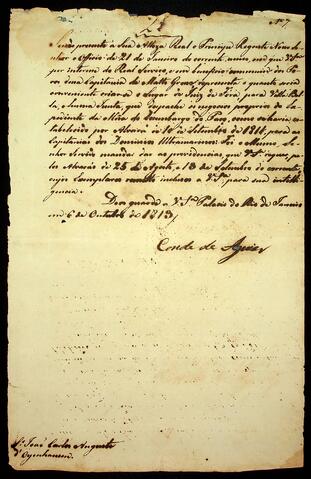 Nº 7
Sendo presente a Sua Alteza Real o Principe Regente Nosso Se-
nhor o Officio de 21 de Janeiro do corrente anno, em que VSria
por interesse do Real Serviço, e em beneficio commum dos Po-
vos dessa Capitania de Matto Grosso representa o quanto seria
conveniente crear-se o Lugar de Juiz de Fóra para Villa Bel-
la, e huma Junta, que despache os negocios proprios do Ex-
pediente da Meza do Dezembargo do Paço, como se havia es-
tabelecido por Alvará de 10 de Setembro de 1811, para as
Capitanias dos Dominios Ultramarinos: Foi o Mesmo Se-
nhor Servido mandar dar as providencias, que VSª requer,
pelos Alvarás de 25 de Agosto, e 18 de Setembro do corrente,
cujos Exemplares remetto inclusos a VSª para sua intelli-
gencia.
Deos guarde a VSª Palacio do Rio de Janeiro
em 6 de Outubro de 1813,
Conde de Aguiar
Sr João Carlos Augusto
d'Oyenhausen.